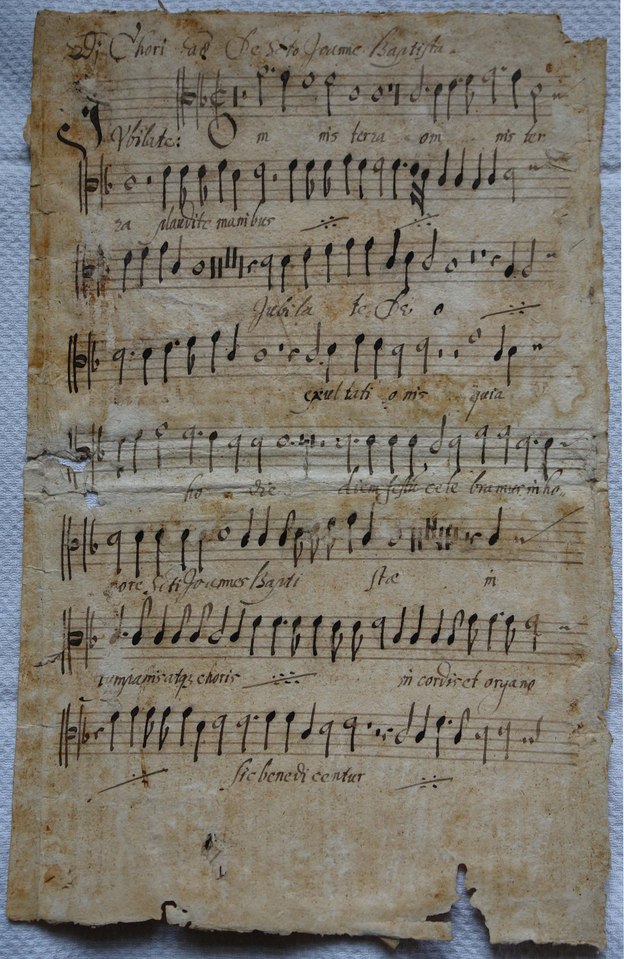 Chori De Scto Joanne Baptista.
Jubilate: Om nis terra om nis ter
ra plaudite manibus
Jubila te De o
exultati onis quia
ho die diem festu cele bramus in ho„
ore Scti Joannes Bapti stæ in
timpanis atq; choris in cordis et organo
sic benedicentur